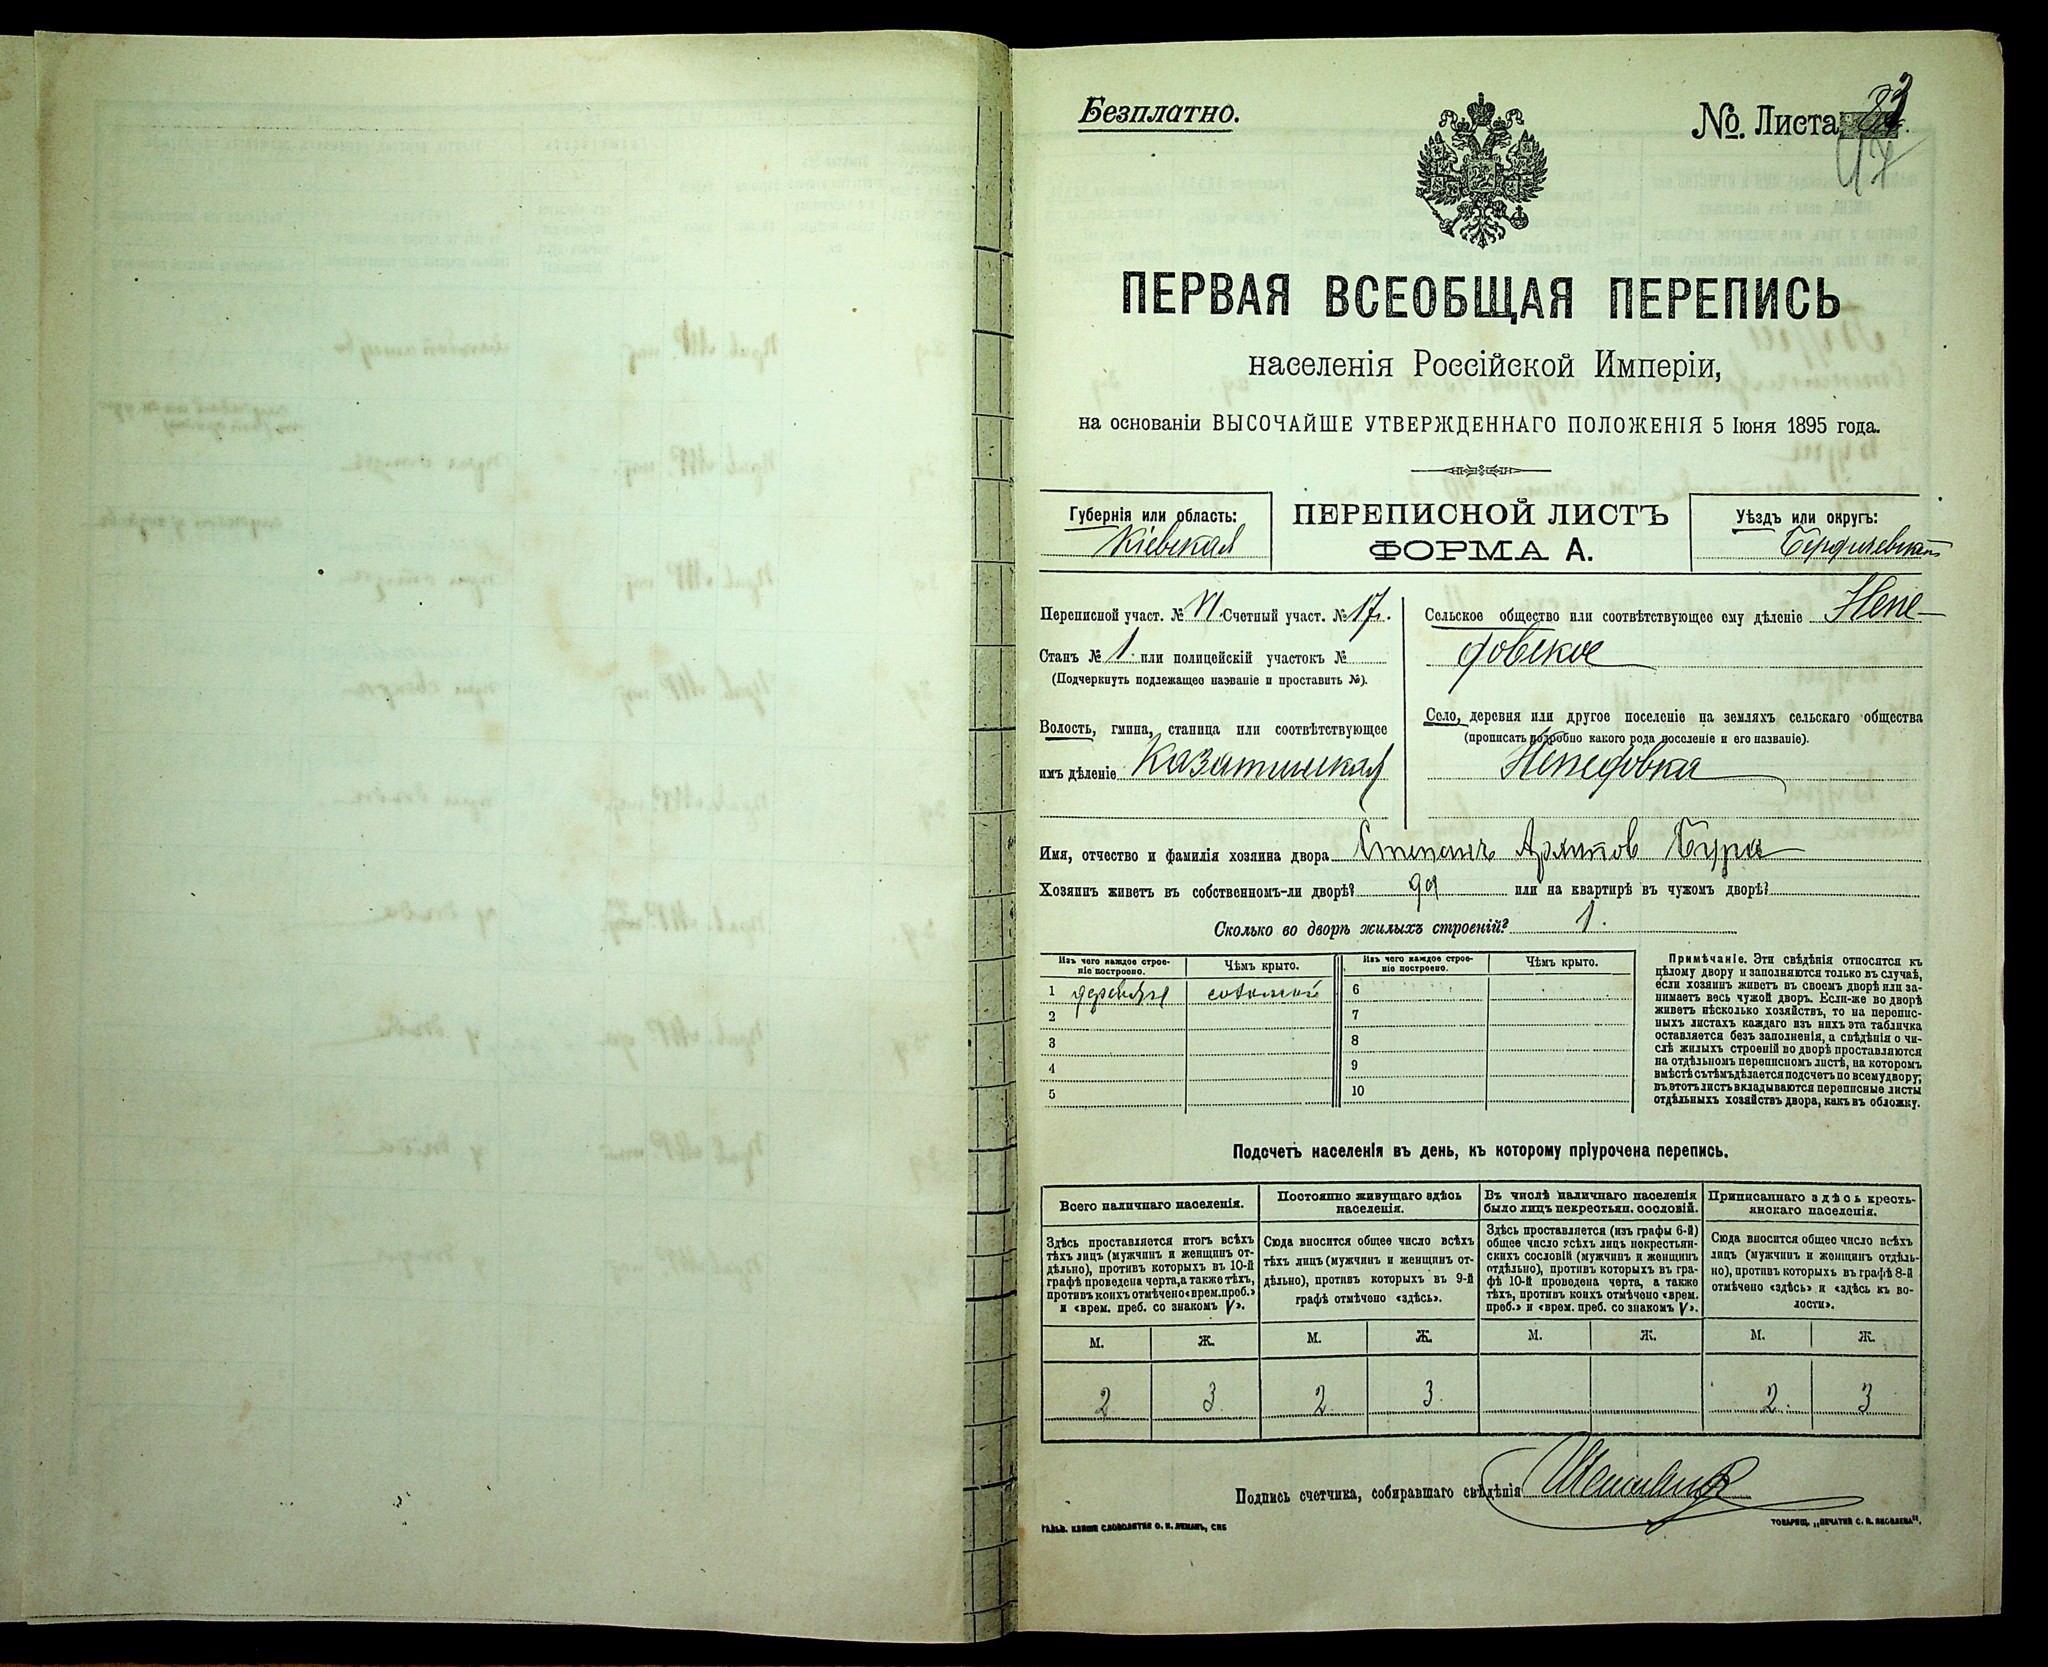 Безплатно.
№. Листа
ПЕРВАЯ ВСЕОБЩАЯ ПЕРЕПИСЬ
населенія Россійской Имперіи,
на основаніи ВЫСОЧАЙШЕ УТВЕРЖДЕННАГО ПОЛОЖЕНІЯ 5 Іюня 1895 года.
Губернія или область:
Кіевская
ПЕРЕПИСНОЙ ЛИСТЪ
ФОРМА А.
Уѣздъ или округъ:
Бердичевскій
Переписной участ. № VI. Счетный участ. № 17.
Станъ № 1. или полицейскій участокъ №
(Подчеркнуть подлежащее названіе и проставить №).
Волость, гмина, станица или соотвѣтствующее
имъ дѣленіе Казатинская
Сельское общество или соотвѣтствующее ему дѣленіе Непе-
довское
Село, деревня или другое поселеніе на земляхъ сельскаго общества
(прописать подробно какого рода поселеніе и его названіе).
Непедовка
Имя, отчество и фамилія хозяина двора Степанъ Архипов Бура
Хозяинъ живетъ въ собственномъ-ли дворѣ? да или на квартирѣ въ чужомъ дворѣ?
Сколько во дворѣ жилыхъ строеній? 1.
Изъ чего каждое строе-
ніе построено.
Чѣмъ крыто.
Изъ чего каждое строе-
ніе построено.
Чѣмъ крыто.
1 соломой 6
2 7
3 8
4 9
5 10
Примѣчаніе. Эти свѣдѣнія относятся къ
цѣлому двору и заполняются только въ случаѣ,
если хозяинъ живетъ въ своемъ дворѣ или за-
нимаетъ весь чужой дворъ. Если-же во дворѣ
живетъ нѣсколько хозяйствъ, то на перепис-
ныхъ листахъ каждаго изъ нихъ эта табличка
оставляется безъ заполненія, а свѣдѣнія о чи-
слѣ жилыхъ строеній во дворѣ проставляются
на отдѣльномъ переписномъ листѣ, на которомъ
вмѣстѣ съ тѣмъ дѣлается подсчетъ по всему двору;
въ этотъ листъ вкладываются переписные листы
отдѣльныхъ хозяйствъ двора, какъ въ обложку.
Подсчетъ населенія въ день, къ которому пріурочена перепись.
Всего наличнаго населенія.
Здѣсь проставляется итогъ всѣхъ
тѣхъ лицъ (мужчинъ и женщинъ от-
дѣльно), противъ которыхъ въ 10-й
графѣ проведена черта, а также тѣхъ,
противъ коихъ отмѣчено «врем. преб.»
и «врем. преб. со знакомъ V».
Постоянно живущаго здѣсь
населенія.
Сюда вносится общее число всѣхъ
тѣхъ лицъ (мужчинъ и женщинъ от-
дѣльно), противъ которыхъ въ 9-й
графѣ отмѣчено «здѣсь».
Въ числѣ наличнаго населенія
было лицъ некрестьян. сословій.
Здѣсь проставляется (изъ графы 6-й)
общее число всѣхъ лицъ некрестьян-
скихъ сословій (мужчинъ и женщинъ
отдѣльно), противъ которыхъ въ гра-
фѣ 10-й проведена черта, а также
тѣхъ, противъ коихъ отмѣчено «врем.
преб.» и «врем. преб. со знакомъ V».
Приписаннаго здѣсь кресть-
янскаго населенія.
Сюда вносится общее число всѣхъ
лицъ (мужчинъ и женщинъ отдѣль-
но), противъ которыхъ въ графѣ 8-й
отмѣчено «здѣсь» и «здѣсь къ во-
лости».
М. Ж. М. Ж. М. Ж. М. Ж.
2 3 2 3 2. 3
Подпись счетчика, собиравшаго свѣдѣнія
ГАЛЬВ. КЛИШЕ СЛОВОЛИТНИ О. И. ЛЕМАНЪ, СПБ
ТОВАРИЩ. „ПЕЧАТНЯ С. П. ЯКОВЛЕВА“.